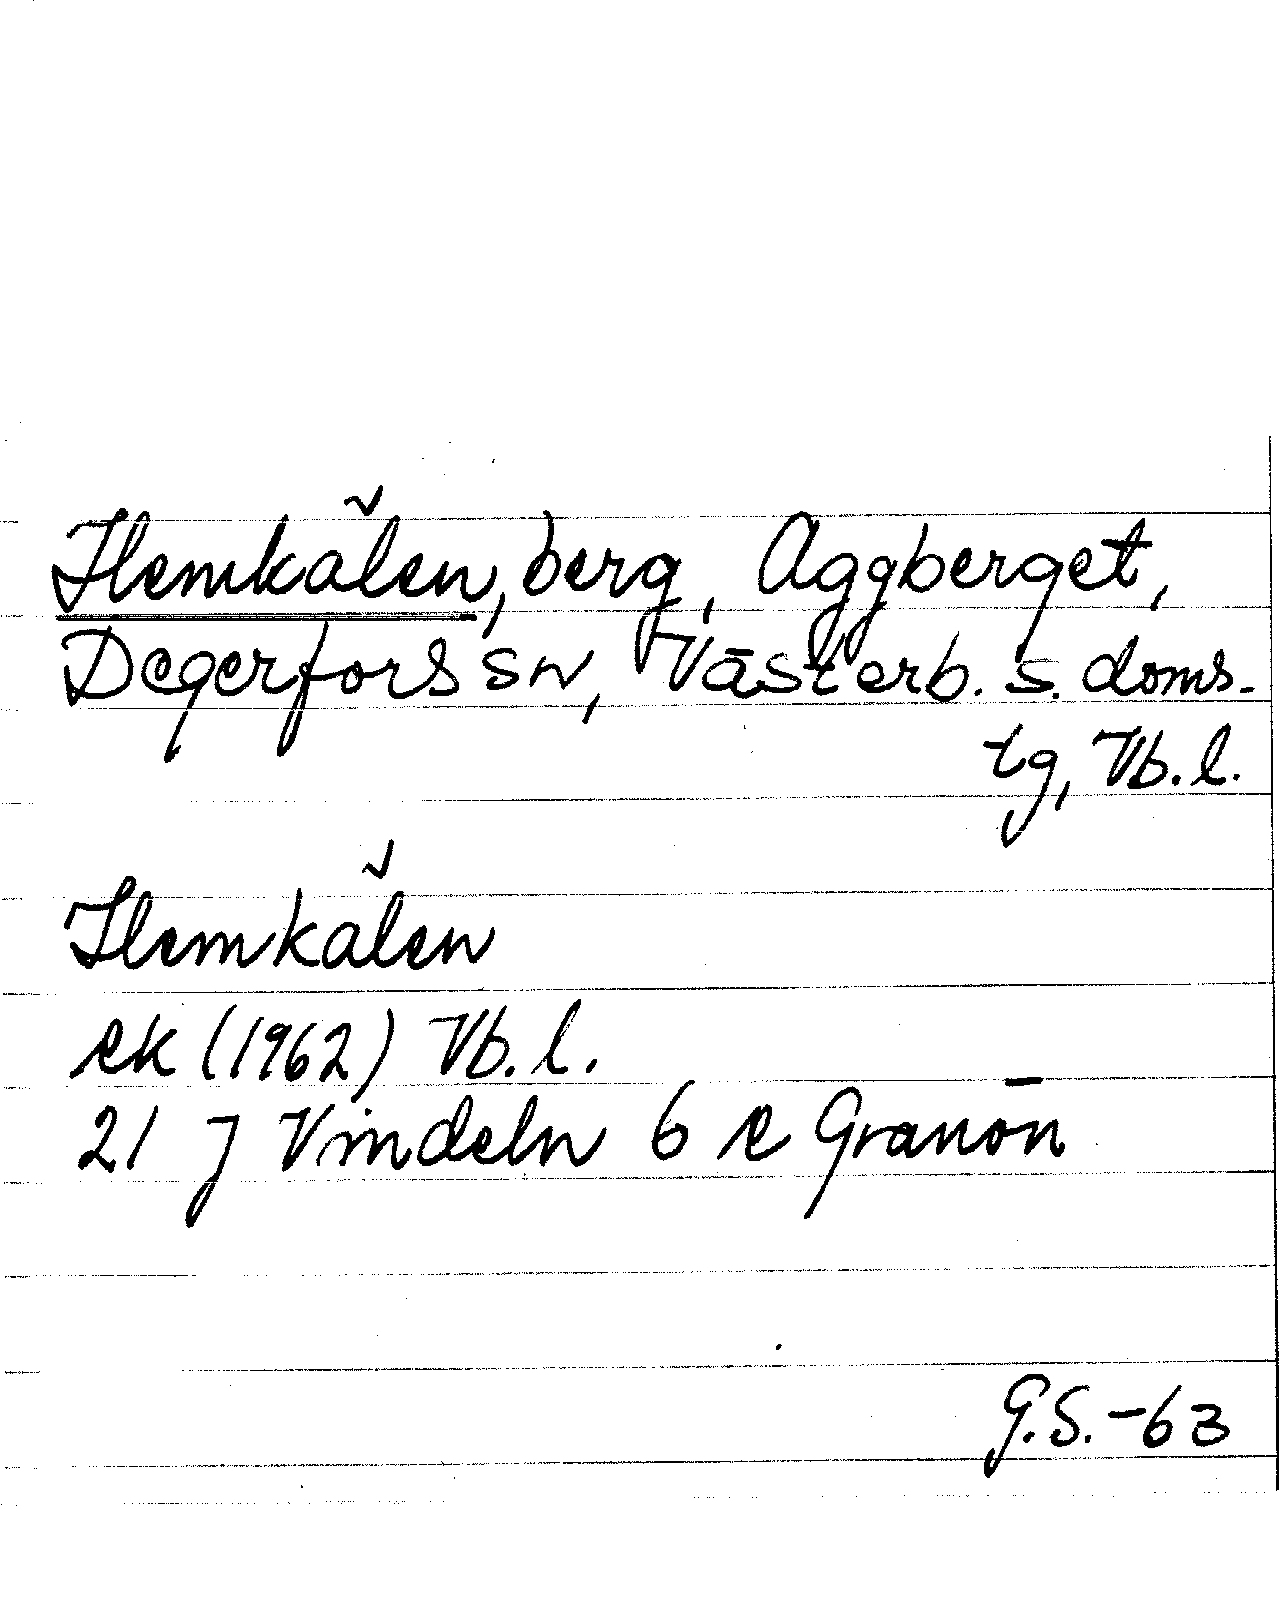 Hemkålen, berg, Aggberget,
Degerfors sn, Västerb. s. doms-
tg, Vb. l.
Hemkålen
ek (1962) Vb. l.
21 J Vindeln 6 e Granön
G.S.-63